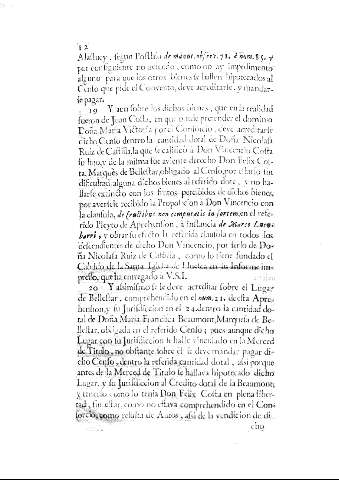 12
Alasluey, segun Posthio de manut. obser. 78. à num. 85. y
por consiguiente no attento, como no ay impedimento
alguno para que los otros bienes se hallen hipotecados al
Censo que pide el Convento, deve acreditarse, y mandar-
se pagar.
19 Y aun sobre los dichos bienes, que en la realidad
fueron de Juan Costa, en que puede pretender el dominio
Doña Maria Victoria por el Consorcio, deve acreditarse
dicho Censo dentro la cantidad dotal de Doña Nicolasa
Ruiz de Castilla, que se calificò à Don Vincencio Costa
su hijo, y de la misma fue aviente derecho Don Felix Cos-
ta, Marquès de Bellestar, obligado al Censo, por estàr sin
dificultad alguna dichos bienes al referido dote, y no ha-
llarse extincto con los frutos percibidos de dichos bienes,
por averse recibido la Proposicion à Don Vincencio con
la clausula, de fructibus non computatis in sortem, en el refe-
rido Pleyto de Aprehension, à instancia de Marco
y obrar su efecto la referida clausula en todos los
descendientes de dicho Don Vincencio, por serlo de Do-
ña Nicolasa Ruiz de Castilla, como lo tiene fundado el
Cabildo de la Santa Iglesia de Huesca en su informe im-
presso, que ha entregado à V.S.I.
20 Y assimismo se le deve acreditar sobre el Lugar
de Bellestar, comprehendido en el num. 21. de esta Apre-
hension, y su Jurisdiccion en el 24. dentro la cantidad do-
tal de Doña Maria Francisca Beaumont, Marquesa de Be-
llestar, obligada en el referido Censo; pues aunque dicho
Lugar con su Jurisdiccion se halle vinculado en la Merced
de Titulo, no obstante sobre èl se deve mandar pagar di-
cho Censo, dentro la referida cantidad dotal, assi porque
antes de la Merced de Titulo se hallava hipotecado dicho
Lugar, y su Jurisdiccion al Credito dotal de la Beaumont,
y tenido como lo tuvo Don Felix Costa en plena liber-
tad, sin estàr, como no estava comprehendido en el Con-
sorcio, como resulta de Autos, assi de la vendicion de di-
cho